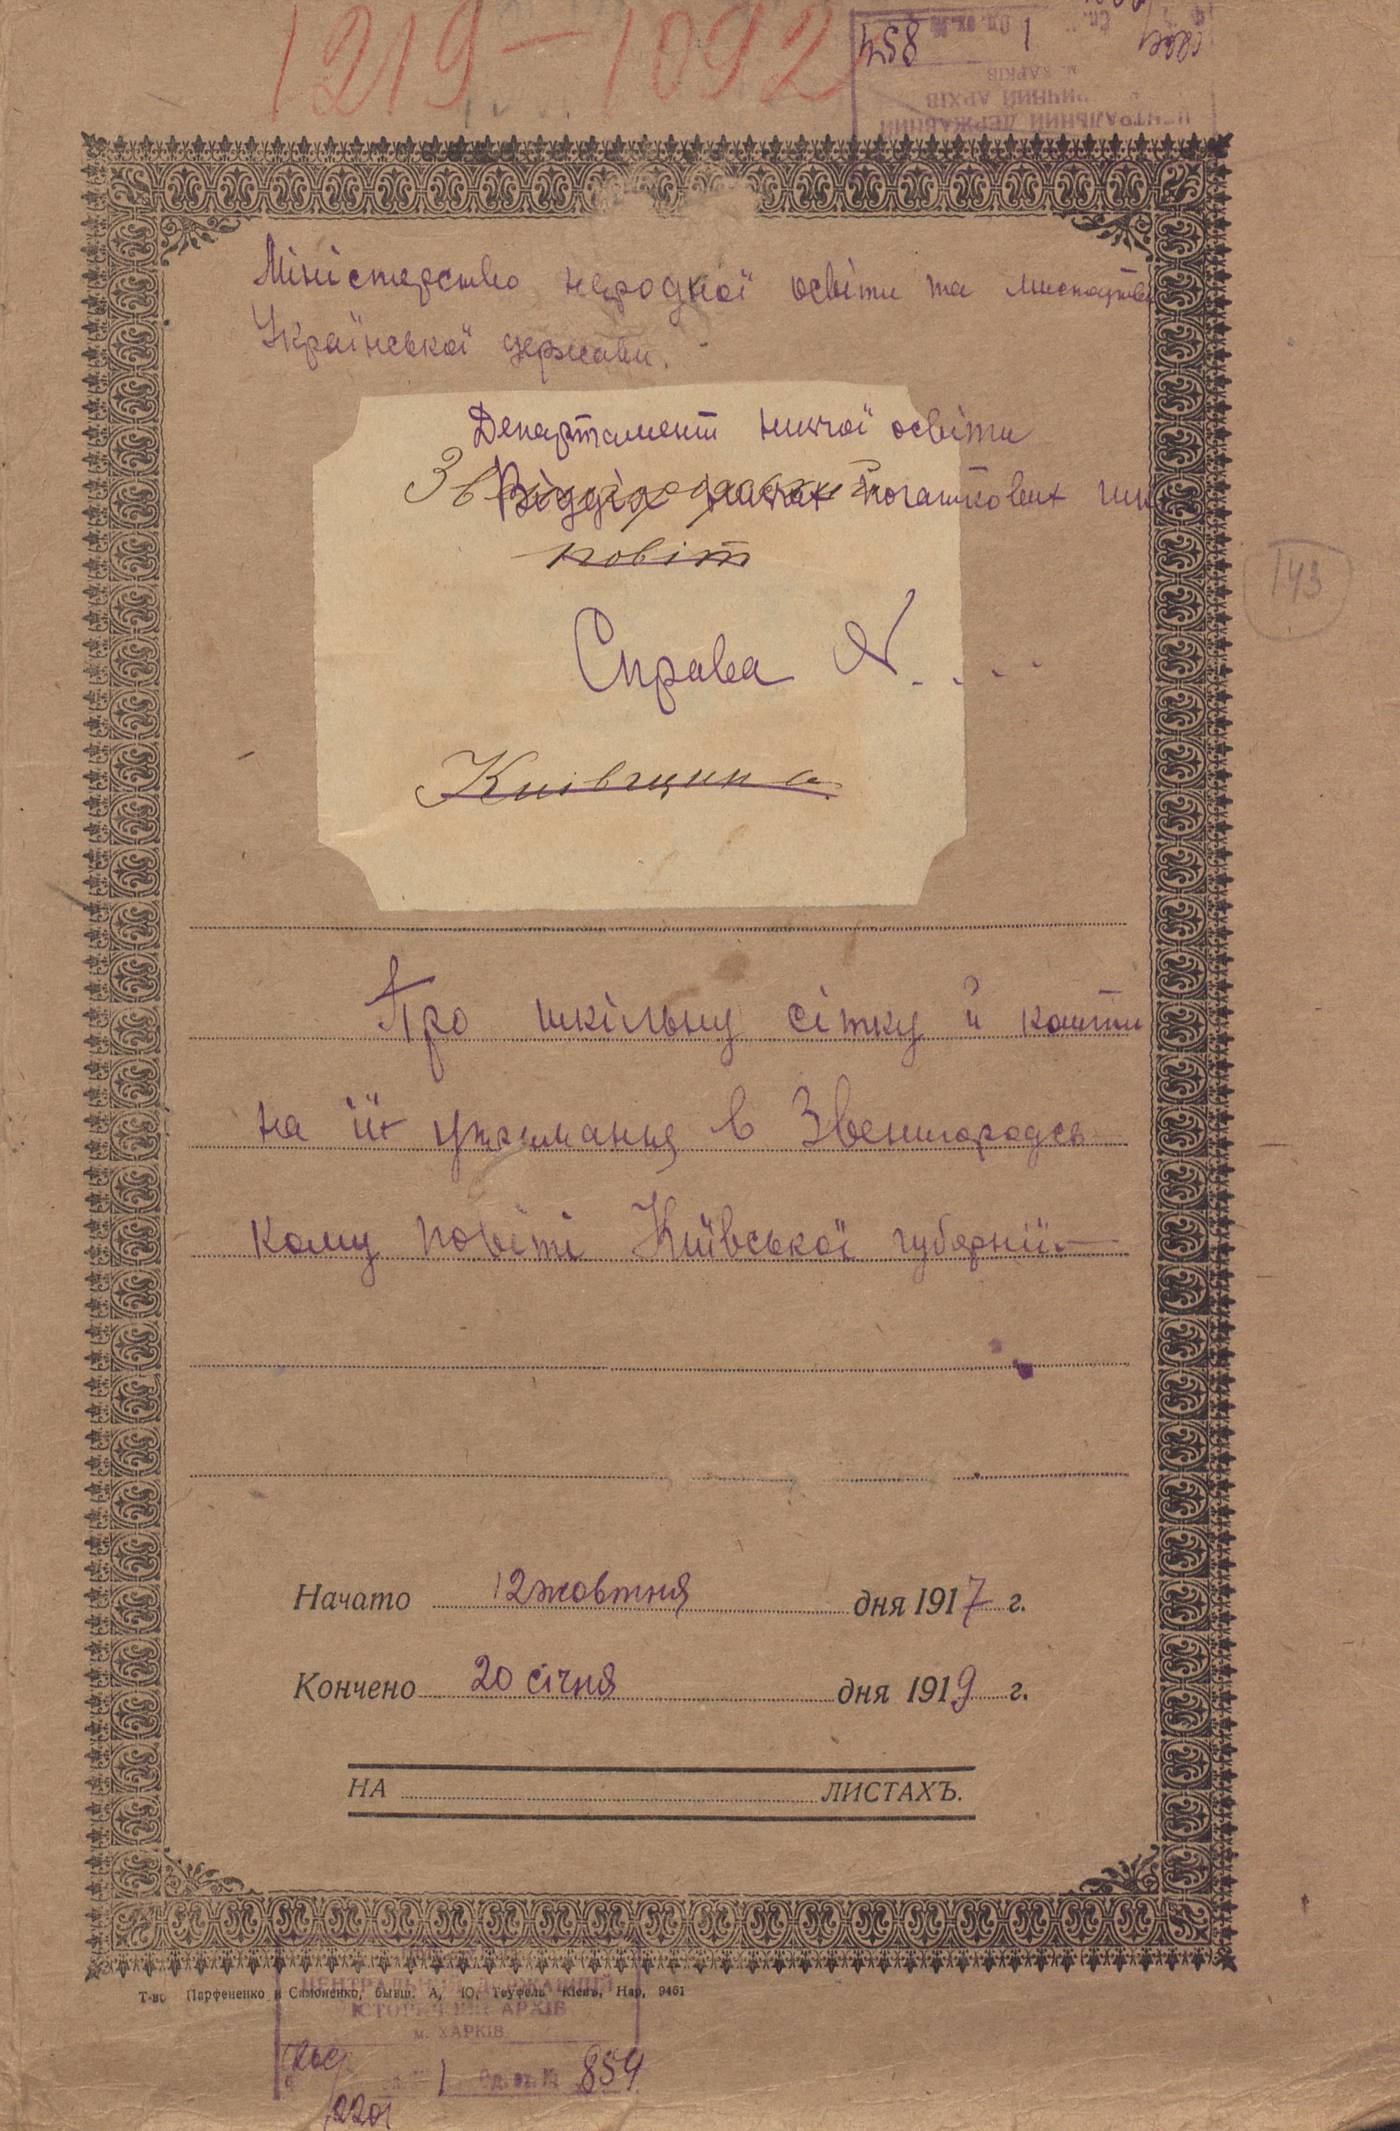 1219-1092
ЦЕНТРАЛЬНИЙ ДЕРЖАВНИЙ
АРХІВ
м. ХАРКІВ
1 854
Міністерство народної освіти та мистецтва
Української держави.
Департамент нижчої освіти
Відділ нижчих початкових
повіт
Справа N....
Київщина
143
Про шкільну сітку й кошти
на їх утримання в Звенигородсь
кому повіті Київської губернії
Начато 12 жовтня дня 1917 г.
Кончено 20 січня дня 1919 г.
НА ЛИСТАХЪ.
Т-во Парфененко и Симоненко, бывш. А. Ю. Теуфель Кіевъ, Нар. 9461
ЦЕНТРАЛЬНИЙ ДЕРЖАВНИЙ
ІСТОРИЧНИЙ АРХІВ
м. ХАРКІВ
1 854
2201